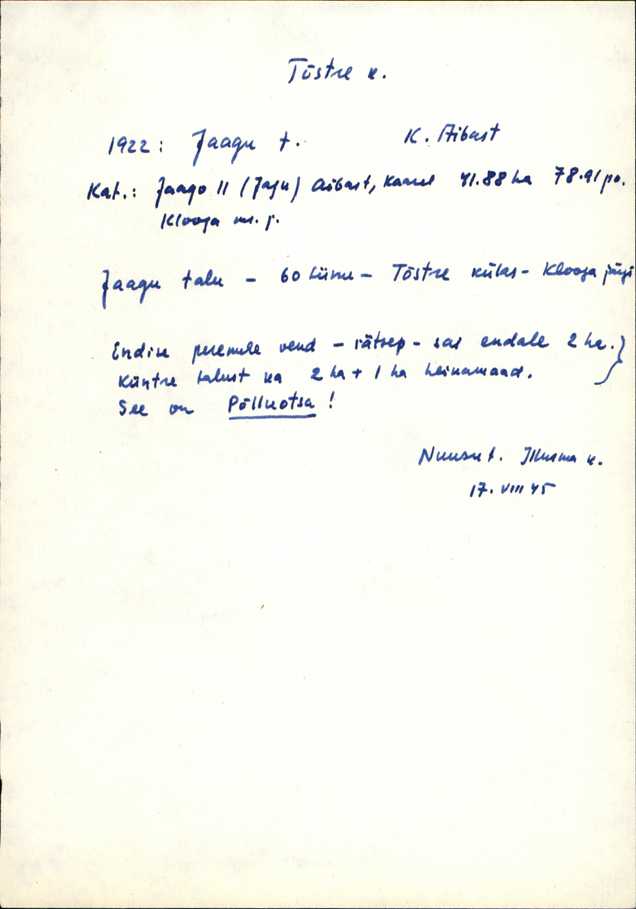 Tõstre k.
1922: Jaagu t. K. Aibast
Kat.: Jaago II (Jaju) Aibast, Kaarel 41.88 ha 78.91 po.
Klooga m. j.
Jaagu talu - 60 - Tõstre külas - Klooga järgi
Endise peremehe vend - rätsep - sai endale 2 ha.
Küntre talust ka 2 ha + 1 ha heinamaad.
See on Põlluotsa!
Nuusu t. Illurma k.
17. VIII 45